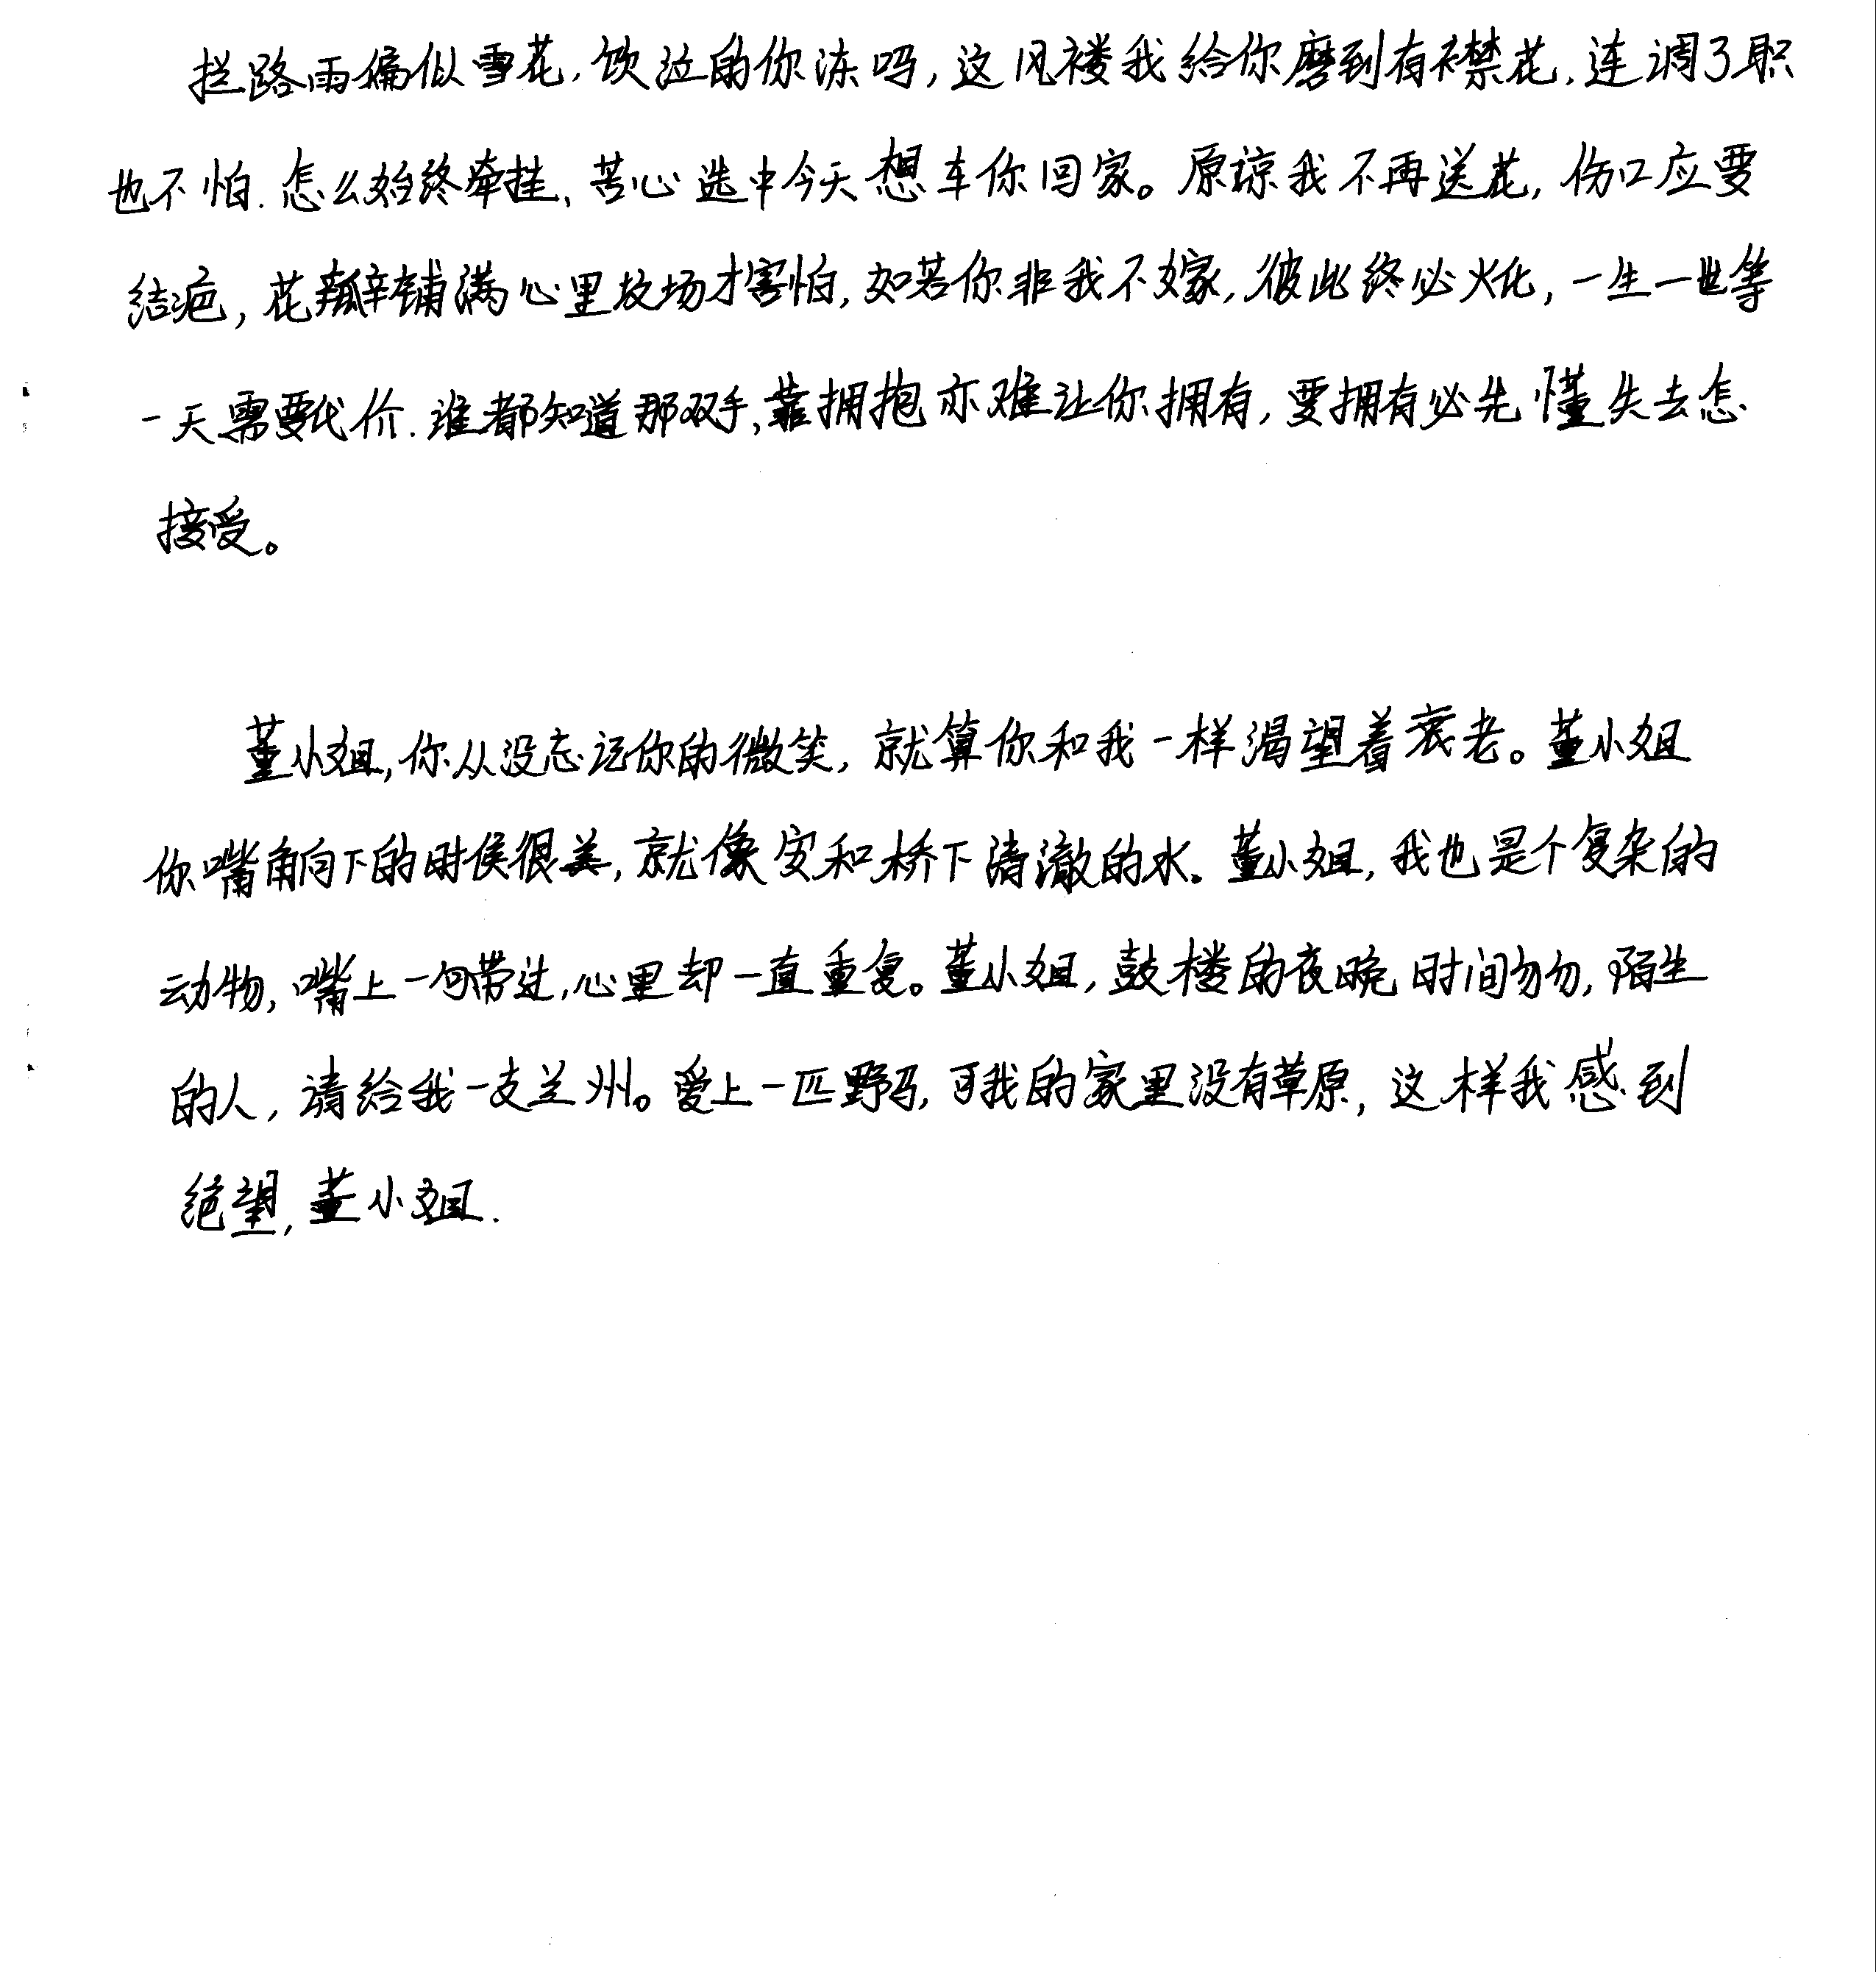 拦路雨偏似雪花，饮泣的你冻吗，这风褛我给你磨到有襟花，连调了职
也不怕．怎么始终牵挂，苦心选中今天想车你回家。原谅我不再送花，伤口应要
结疤，花瓣铺满心里坟场才害怕，如若你非我不嫁，彼此终必火化，一生一世等
一天需要代价．谁都知道那双手，靠拥抱亦难让你拥有，要拥有必先懂失去怎
接受。
董小姐，你从没忘记你的微笑，就算你和我一样渴望着衰老。董小姐
你嘴角向下的时候很美，就像安和桥下清澈的水。董小姐，我也是个复杂的
动物，嘴上一句带过，心里却一直重复。董小姐，鼓楼的夜晚时间匆匆，陌生
的人，请给我一支兰州。爱上一匹野马，可我的家里没有草原，这样我感到
绝望，董小姐．